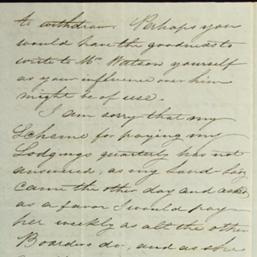 to withdraw. Perhaps you
would have the goodness to
write to Mr Watson yourself
as your influence over him
might be of use.
I am sorry that my
Scheme for paying my
Lodgings quarterly has not
answered, as my Land-lady
came the other day and asked
as a favor I would pay
her weekly as all the other
Boarders do, and as she